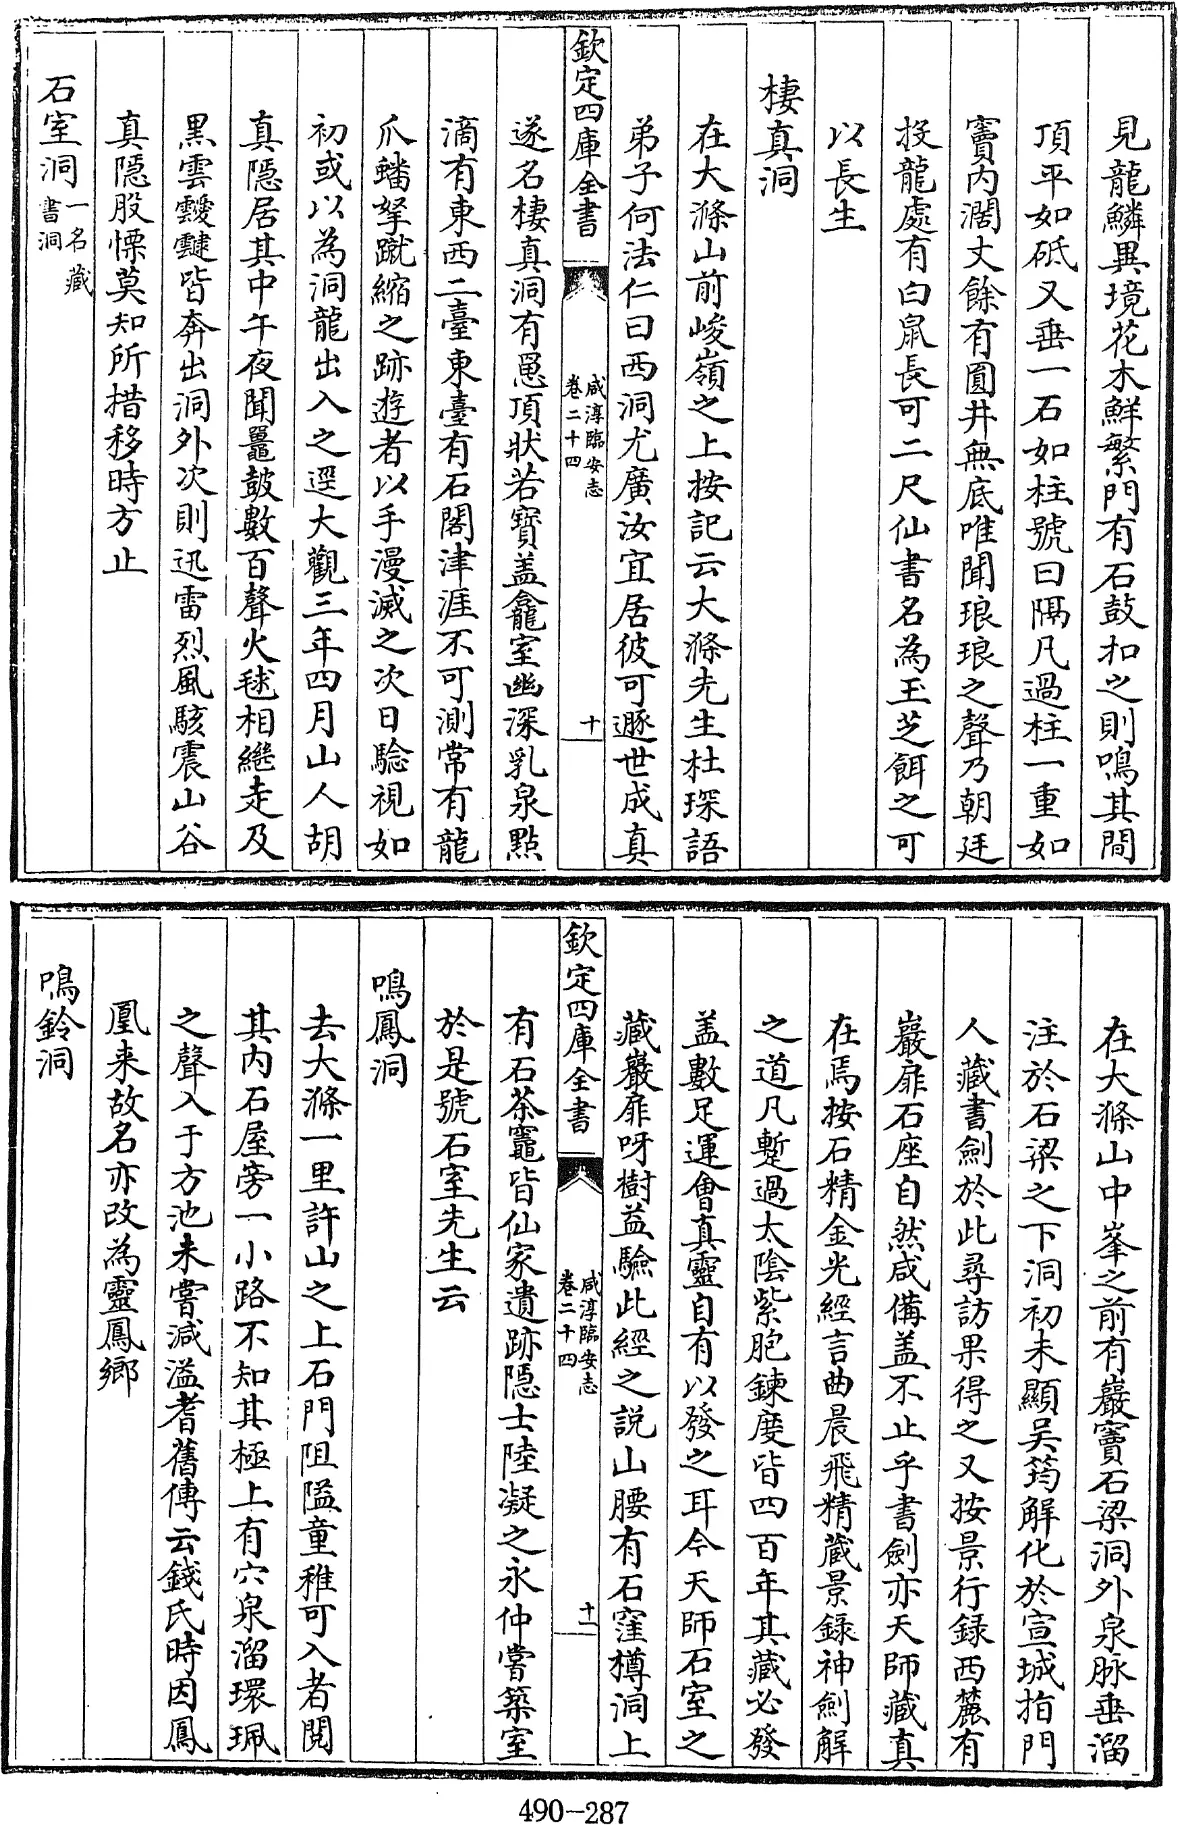 見龍鱗異境花木鮮繁門有石鼓扣之則鳴其間
頂平如砥又垂一石如柱號曰隔凡過柱一重如
竇内濶丈餘有圓井無底唯聞琅琅之聲乃朝廷
投龍處有白鼠長可二尺仙書名為玉芝餌之可
以長生
棲真洞
在大滌山前峻嶺之上按記云大滌先生杜琛語
弟子何法仁曰西洞尤廣汝宜居彼可遯世成真
欽定四庫全書
咸淳臨安志
卷二十四
十
遂名棲真洞有鬼頂狀若寶盖龕室幽深乳泉點
滴有東西二臺東臺有石閣津涯不可測常有龍
爪蟠拏蹴縮之跡遊者以手漫滅之次日驗視如
初或以為洞龍出入之逕大觀三年四月山人胡
真隱居其中午夜聞鼉鼓數百聲火毬相繼走及
黒雲靉靆皆奔出洞外次則迅雷烈風駭震山谷
真隱股慄莫知所措移時方止
石室洞一名藏
書洞
在大滌山中峯之前有巖竇石梁洞外泉脉垂溜
注於石梁之下洞初未顯吳筠解化於宣城指門
人藏書劍於此尋訪果得之又按景行録西麓有
巖扉石座自然咸備盖不止乎書劍亦天師藏真
在焉按石精金光經言曲晨飛精藏景錄神劍解
之道凡蹔過太隂紫胞鍊度皆四百年其藏必發
盖數足運會真靈自有以發之耳今天師石室之
藏巖扉呀樹益驗此經之說山腰有石窪樽洞上
欽定四庫全書
咸淳臨安志
卷二十四
十一
有石茶竈皆仙家遺跡隱士陸凝之永仲嘗築室
於是號石室先生云
鳴鳳洞
去大滌一里許山之上石門阻隘童稚可入者閱
其内石屋旁一小路不知其極上有穴泉溜環珮
之聲入于方池未嘗減溢耆舊傳云錢氏時因鳳
凰来故名亦改為靈鳳鄉
鳴鈴洞
490-287